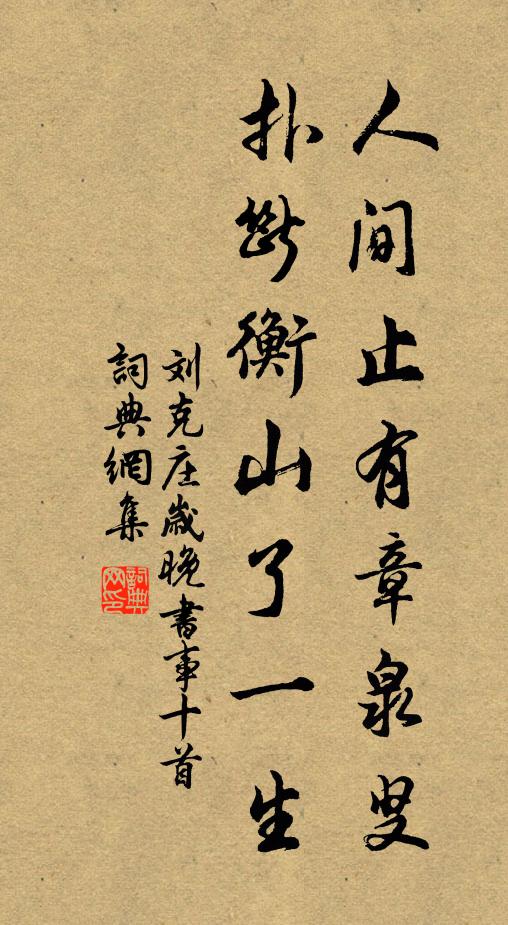 人间止有章泉叟
扑断衡山了一生
刘克庄歲晚書事十首
詞典網集
詞典网印